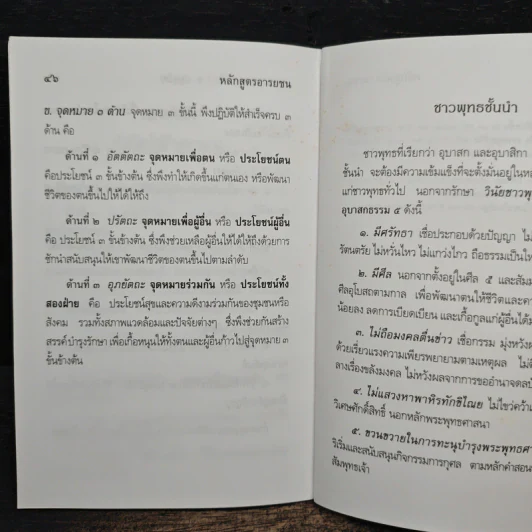 ๔๖ หลักสูตรอารยชน
ข. จุดหมาย ๓ ด้าน จุดหมาย ๓ ขั้นนี้ พึงปฏิบัติให้สำเร็จครบ ๓
ด้าน คือ
ด้านที่ ๑ อัตตัตถะ จุดหมายเพื่อตน หรือ ประโยชน์ตน
คือประโยชน์ ๓ ขั้นข้างต้น ซึ่งพึงทำให้เกิดขึ้นแก่ตนเอง หรือพัฒนา
ชีวิตของตนขึ้นไปให้ได้ให้ถึง
ด้านที่ ๒ ปรัตถะ จุดหมายเพื่อผู้อื่น หรือ ประโยชน์ผู้อื่น
คือ ประโยชน์ ๓ ขั้นข้างต้น ซึ่งพึงช่วยเหลือผู้อื่นให้ได้ให้ถึงด้วยการ
ชักนำสนับสนุนให้เขาพัฒนาชีวิตของตนขึ้นไปตามลำดับ
ด้านที่ ๓ อุภยัตถะ จุดหมายร่วมกัน หรือ ประโยชน์ทั้ง
สองฝ่าย คือ ประโยชน์สุขและความดีงามร่วมกันของชุมชนหรือ
สังคม รวมทั้งสภาพแวดล้อมและปัจจัยต่างๆ ซึ่งพึงช่วยกันสร้าง
สรรค์บำรุงรักษา เพื่อเกื้อหนุนให้ทั้งตนและผู้อื่นก้าวไปสู่จุดหมาย ๓
ขั้นข้างต้น
ชาวพุทธชั้นนำ
ชาวพุทธที่เรียกว่า อุบาสก และอุบาสิกา
ชั้นนำ จะต้องมีความเข้มแข็งที่จะตั้งมั่นอยู่ในห
แก่ชาวพุทธทั่วไป นอกจากรักษา วินัยชาวพุ
อุบาสกธรรม ๕ ดังนี้
๑. มีศรัทธา เชื่อประกอบด้วยปัญญา ไม่
รัตนตรัย ไม่หวั่นไหว ไม่แกว่งไกว ถือธรรมเป็นให
๒. มีศีล นอกจากตั้งอยู่ในศีล ๕ และสัมม
ศีลอุโบสถตามกาล เพื่อพัฒนาตนให้ชีวิตและคว
น้อยลง ลดการเบียดเบียน และเกื้อกูลแก่ผู้อื่นได้ม
๓. ไม่ถือมงคลตื่นข่าว เชื่อกรรม มุ่งหวังผ
ด้วยเรี่ยวแรงความเพียรพยายามตามเหตุผล ไม่ตื่
ลางเรื่องขลังมงคล ไม่หวังผลจากการขออำนาจดลบั
๔. ไม่แสวงหาพาหิรทักขิไณย ไม่ไขว่คว้า
วิเศษศักดิ์สิทธิ์ นอกหลักพระพุทธศาสนา
๕. ขวนขวายในการทะนุบำรุงพระพุทธศา
ริเริ่มและสนับสนุนกิจกรรมการกุศล ตามหลักคำสอน
สัมพุทธเจ้า